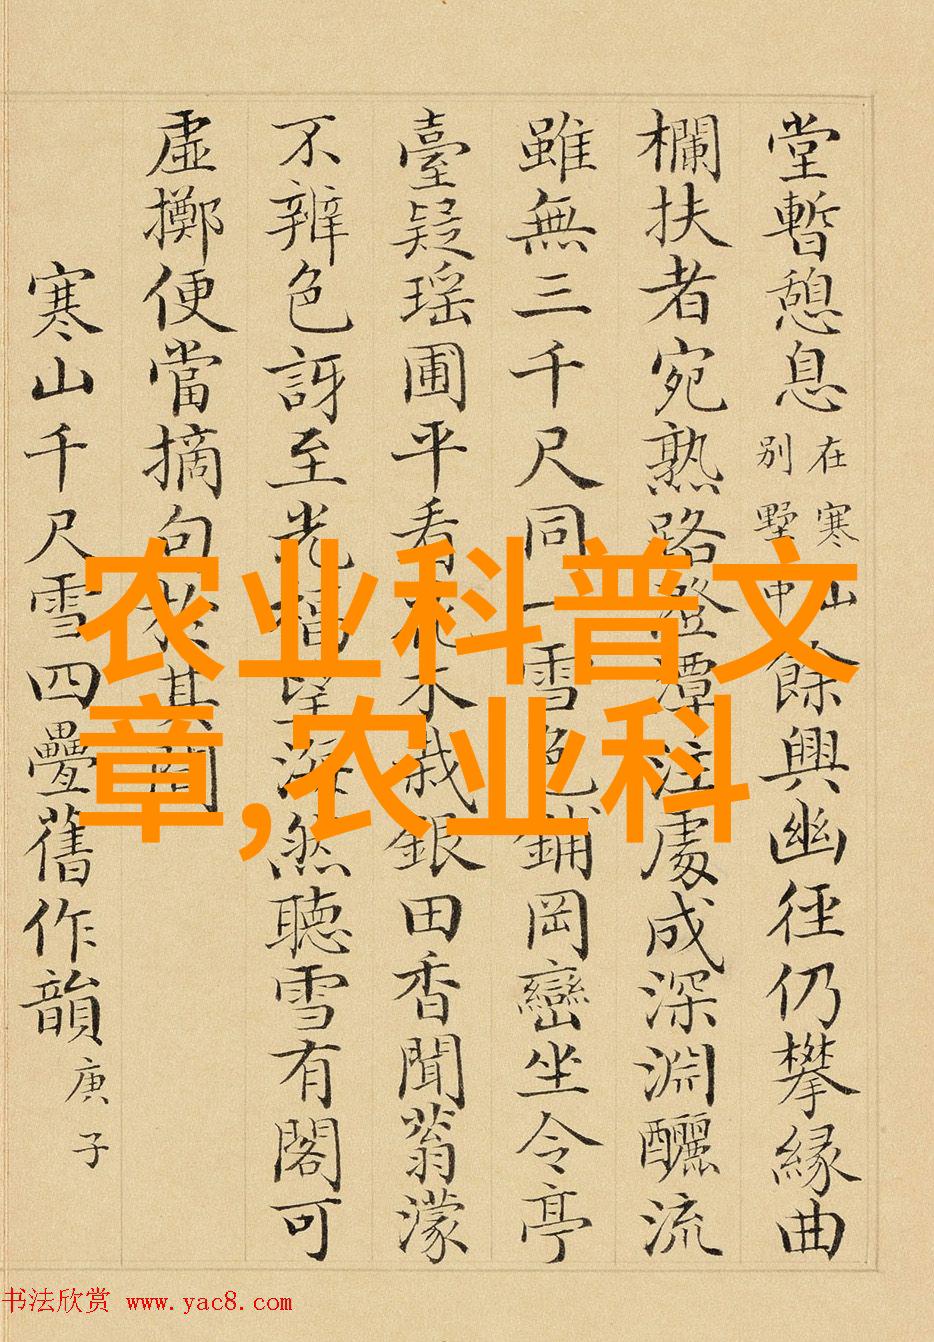 堂暫憩息在寒山別墅中餘興幽徑仍攀緣曲
欄扶者宛熟路澄潭注處成深淵釃流
雖無三千尺同一雪色鋪岡巒坐令亭
臺疑瑶圃平看花木栽銀田香聞蓊濛
不辨色訝至光望深然聽雪有閣可
虛擲便當摘句於其間
寒山千尺雪四疊舊作韻庚子
农业科普文
章,农业科
书法欣赏 www.yac8.com